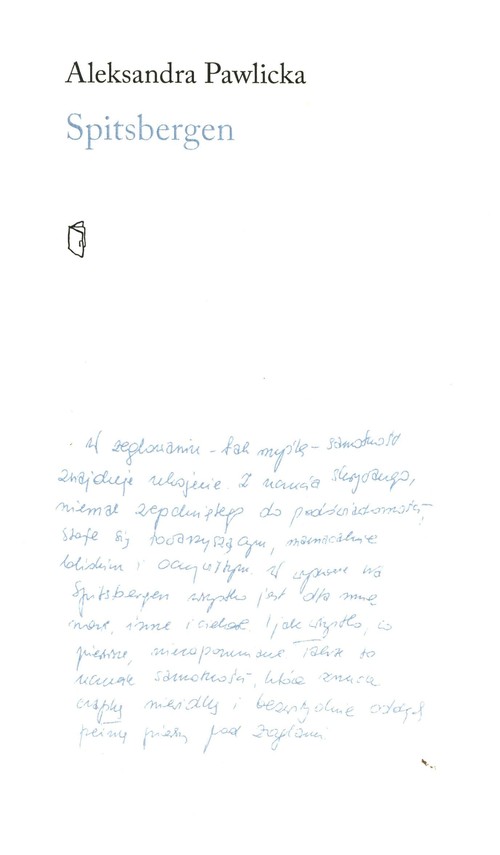 Aleksandra Pawlicka
Spitsbergen
W żeglowaniu – tak myślę – samotność
znajduje ukojenie. Z uczucia skrytego,
niemal zepchniętego do podświadomości,
staje się towarzyszącym, namacalnie
bliskim i oczywistym. W wyprawie na
Spitsbergen wszystko jest dla mnie
nowe, inne i ciekawe. I jak wszystko, co
pierwsze, niezapomniane. Także to
uczucie samotności, które zrzuca
czapkę niewidkę i bezwstydnie oddycha
pełną piersią pod żaglami.